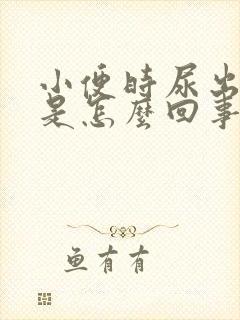 小便时尿出
是怎麽回事
鱼有有